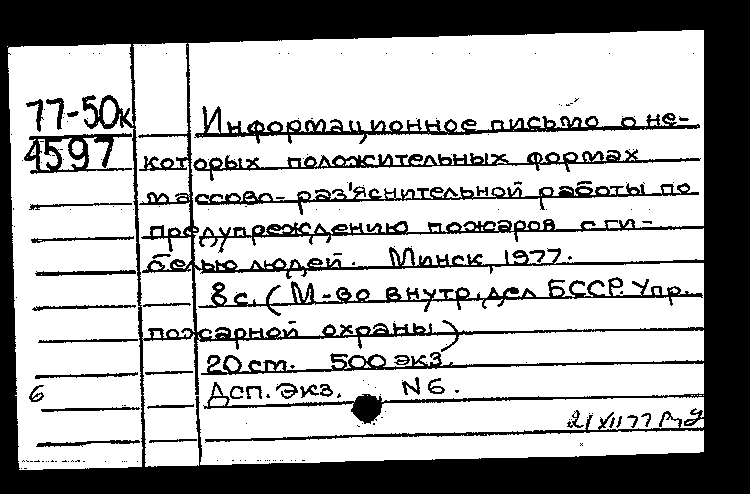 77-50к
4597
Информационное письмо о не-
которых положительных формах
массово-раз'яснительной работы по
предупреждению пожаров с ги-
белью людей. Минск, 1977.
8 с. (М-во внутр. дел БССР. Упр.
пожарной охраны)
20 ст. 500 экз.
Дсп. Экз. N6.
6
21 XII 77